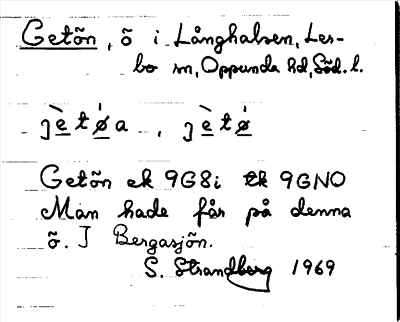 Getõn, õ i Långhalsen, Les-
bo sn, Oppunda hd, Söd. l.
jètøa, jètø
Getõn ek 9G8i tk 9GNO
Man hade får på denna
õ. I Bergasjõn.
S. Strandberg 1969